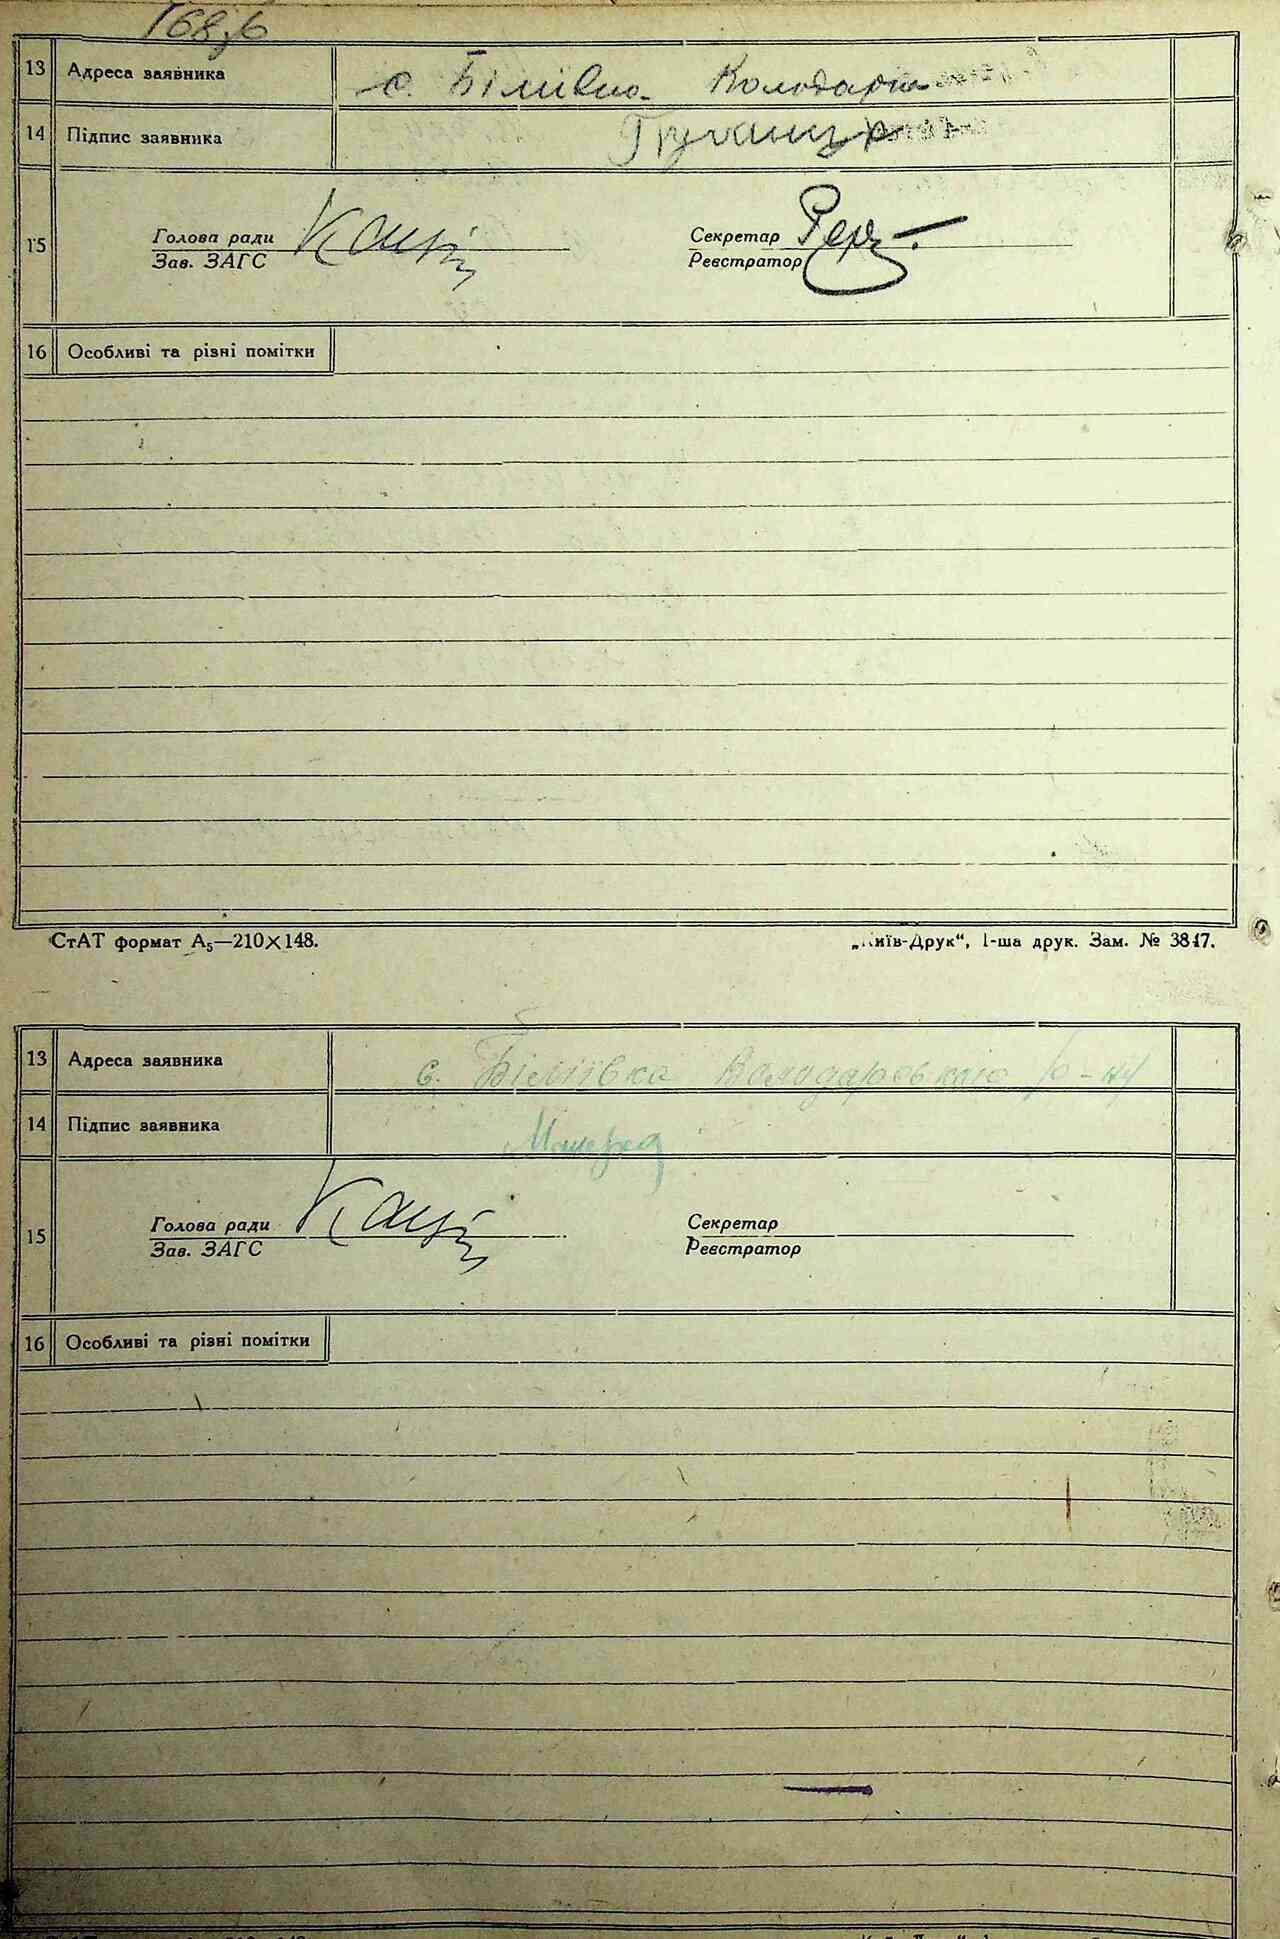 168зб
13 Адреса заявника с. Біліївка Володарськ
14 Підпис заявника
15 Голова ради Секретар
Зав. ЗАГС Реєстратор
16 Особливі та різні помітки
СтАТ формат А₅—210×148. „Київ-Друк“, 1-ша друк. Зам. № 3847.
13 Адреса заявника с. Біліївка Володарського р-ну
14 Підпис заявника
15 Голова ради Секретар
Зав. ЗАГС Реєстратор
16 Особливі та різні помітки